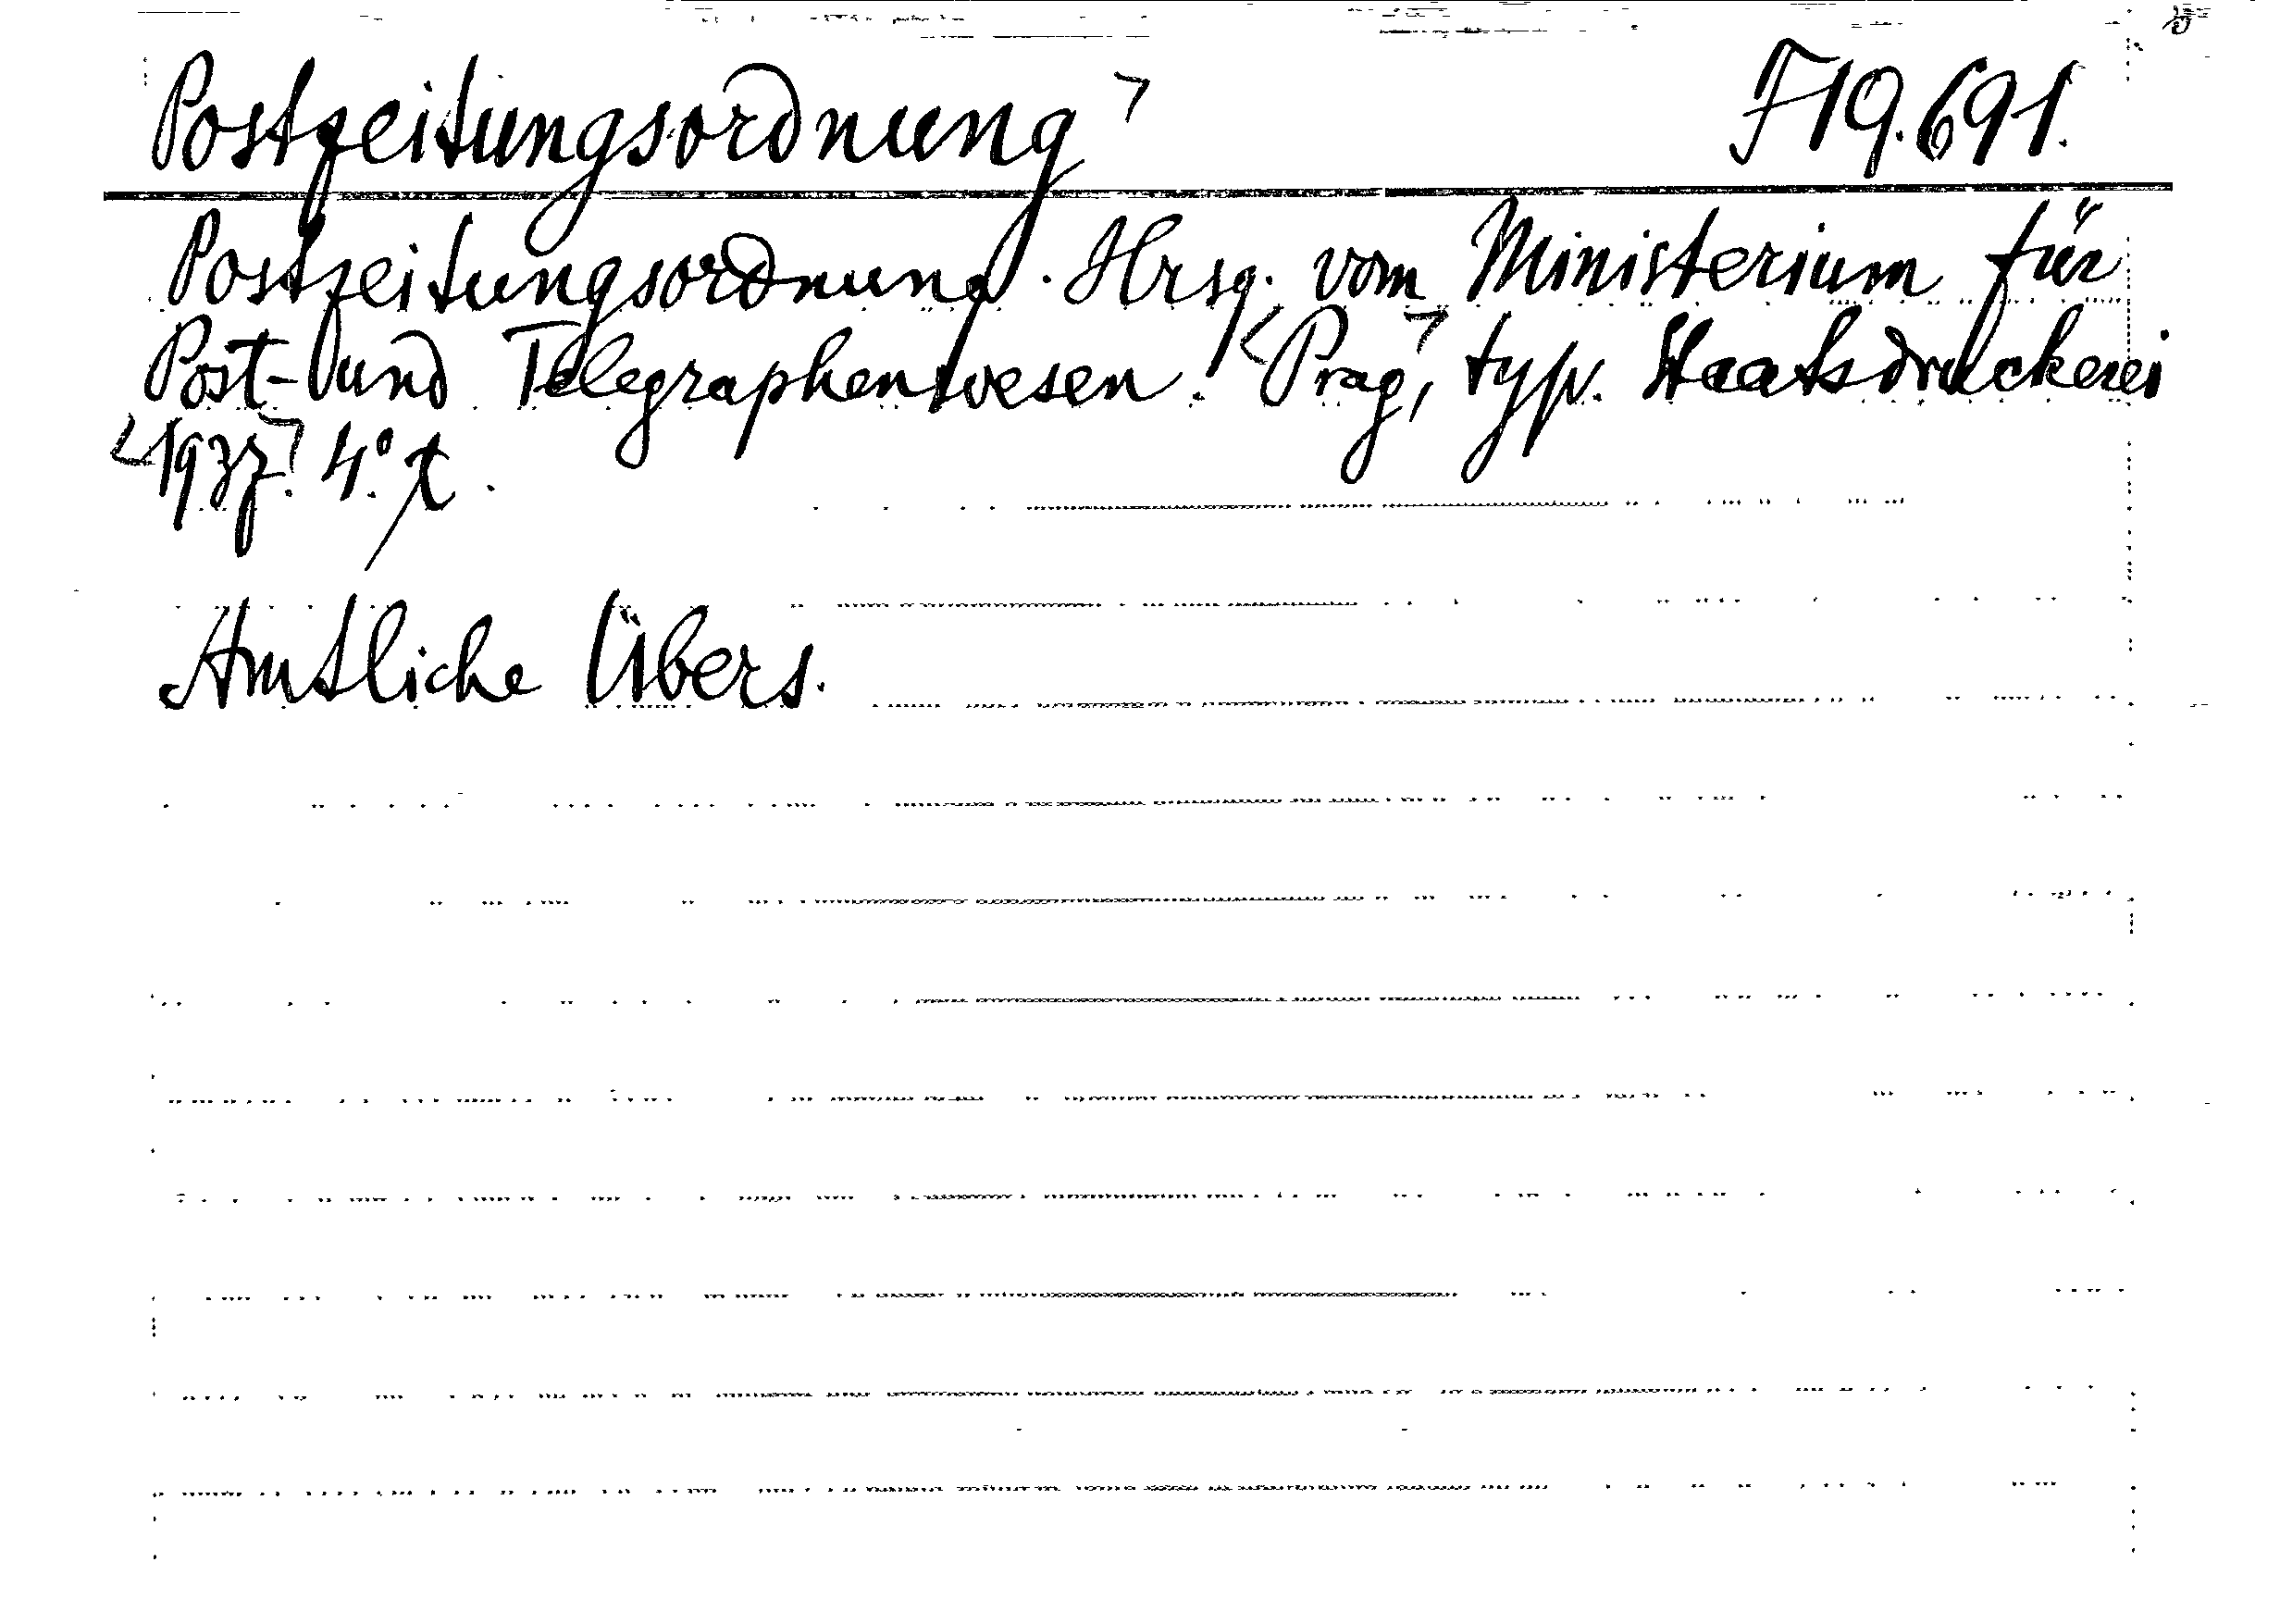 Postzeitungsordnung F 19.691.
Postzeitungsordnung. Hrsg. vom Ministerium für
Post- und Telegraphenwesen. Prag, typ. Staatsdruckerei
1937. 4°.
Amtliche Übers.